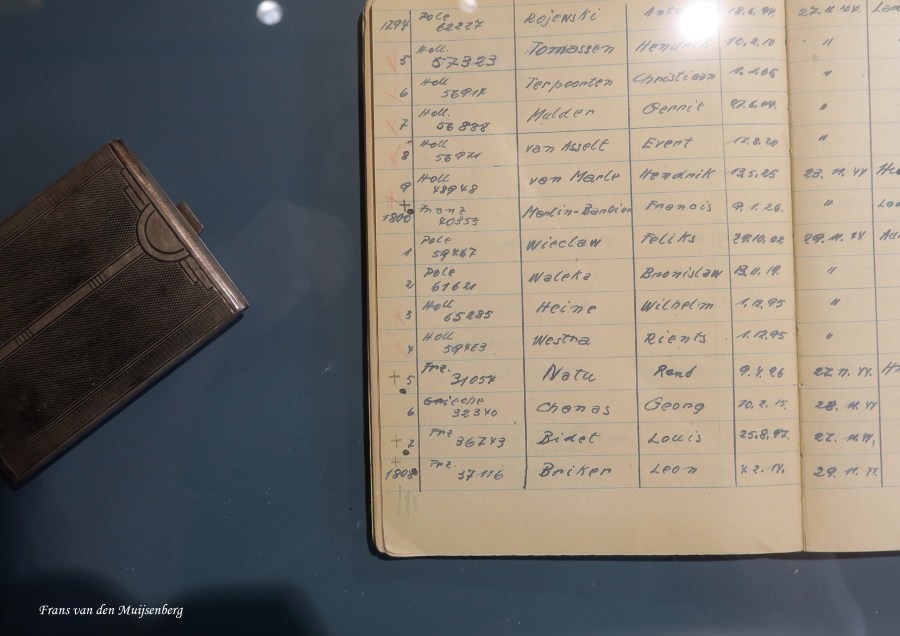 1794 Pole 62227 Rojewski 18.6. 27.11.44.
5 Holl. 57323 Tomassen Hendrik 10.2.10 "
6 Holl 56917 Terpoorten Christiaan 1.1.06 "
7 Holl. 56888 Mulder Gerrit 27.6.04. "
8 Holl 56971 van Asselt Evert 17.8.20 "
9 Holl 48948 van Marle Hendrik 13.5.25 28.11.44
1800 Franz 40353 Morlin-Barbier Francis 9.1.26. "
1 Pole 59467 Wieclaw Feliks 29.10.02 29.11.44
2 Pole 61621 Waleka Bronislaw 13.11.19. "
3 Holl 65285 Heine Wilhelm 1.12.95 "
4 Holl 59463 Westra Rients 1.12.95 "
+ 5 Frz. 31054 Natu René 9.4.26 27.11.44.
6 Grieche 32340 Chanas Georg 10.2.15. 28.11.44
+ 7 Frz 36743 Bidet Louis 25.8.97. 27.11.44.
+ 1808 Frz. 37116 Briker Leon 4.2.14. 29.11.44.
Frans van den Muijsenberg